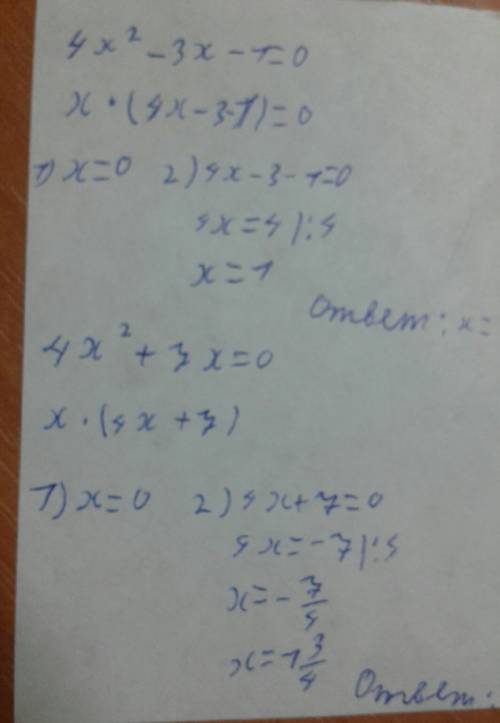 4x² - 3x - 1 = 0
x · (4x - 3 - 1) = 0
1) x = 0 2) 4x - 3 - 1 = 0
4x = 4 | : 4
x = 1
Ответ: x =
4x² + 7x = 0
x · (4x + 7)
1) x = 0 2) 4x + 7 = 0
4x = -7 | : 4
x = - 7/4
x = -1 3/4
Ответ: